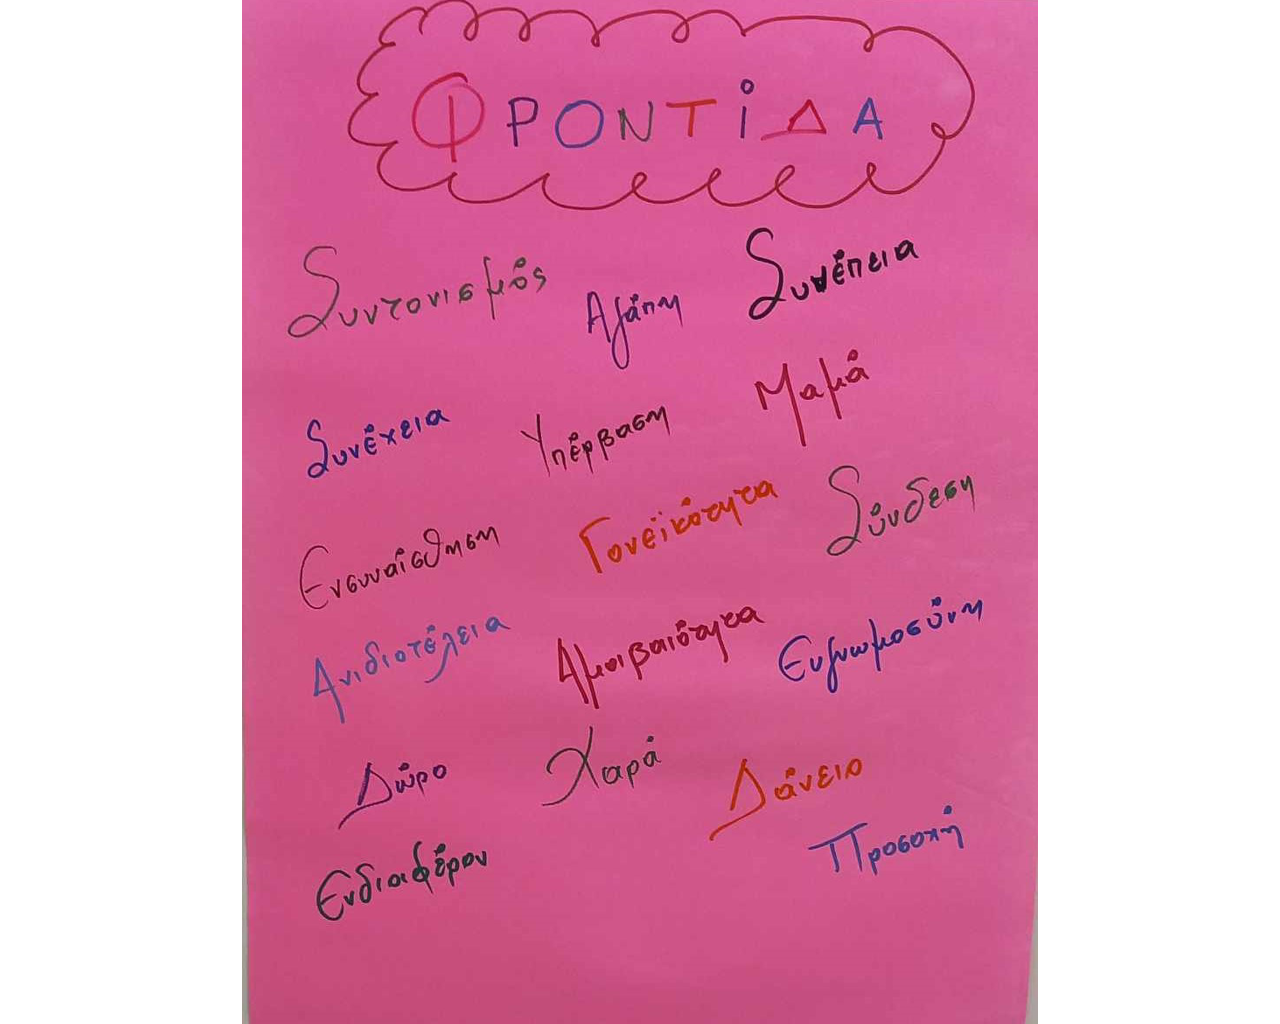 ΦΡΟΝΤΙΔΑ
Συντονισμός Αγάπη Συνέπεια
Συνέχεια Υπέρβαση Μαμά
Ενσυναίσθηση Γονεϊκότητα Σύνδεση
Ανιδιοτέλεια Αμοιβαιότητα Ευγνωμοσύνη
Δώρο Χαρά Δάνειο
Ενδιαφέρον Προσοχή